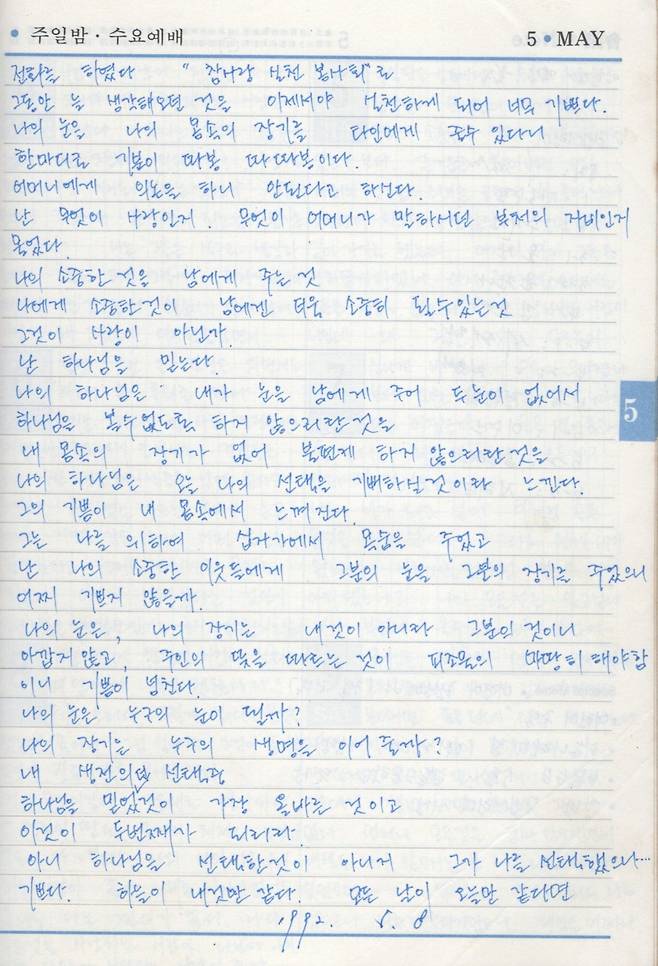 주일밤 · 수요예배
5 • MAY
전화를 하였다 "참사랑 실천 봉사회"로
그동안 늘 생각해오던 것을 이제서야 실천하게 되어 너무 기쁘다.
나의 눈은 나의 몸속의 장기를 타인에게 줄수 있다니
한마디로 기분이 따봉 따따봉이다.
어머니에게 의논을 하니 안된다고 하신다.
난 무엇이 사랑인지. 무엇이 어머니가 말하시던 부처의 자비인지
물었다.
나의 소중한 것을 남에게 주는 것
나에게 소중한것이 남에겐 더욱 소중히 될수있는것
그것이 사랑이 아닌가.
난 하나님을 믿는다.
나의 하나님은 내가 눈을 남에게 주어 두눈이 없어서
하나님을 볼수없도록 하지 않으리란것을
내 몸속의 장기가 없어 불편케 하지 않으리란것을
나의 하나님은 오늘 나의 선택을 기뻐하실것이라 느낀다.
그의 기쁨이 내 몸속에서 느껴진다.
그는 나를 위하여 십자가에서 목숨을 주었고
난 나의 소중한 이웃들에게 그분의 눈을 그분의 장기를 주었으니
어찌 기쁘지 않을까.
나의 눈은, 나의 장기는 내것이 아니라 그분의 것이니
아깝지 않고, 주인의 뜻을 따르는 것이 피조물의 마땅히 해야함
이니 기쁨이 넘친다.
나의 눈은 누구의 눈이 될까?
나의 장기는 누구의 생명을 이어 줄까?
내 생전의 선택중
하나님을 믿었것이 가장 올바른 것이고
이것이 두번째가 되리라.
아니 하나님을 선택한것이 아니지 그가 나를 선택했으니…
기쁘다. 하늘이 내것만 같다. 모든 날이 오늘만 같다면
1992. 5. 8
5